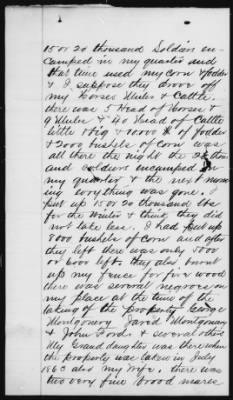 15 or 20 thousand Soldiers en-
camped in my quarter and
that time used my corn & fodder
& I suppose they drove off
my Horses Mules & Cattle.
there was 5 Head of Horses &
9 Mules & 40 Head of Cattle
little & big & 10000 # of fodder
& 2000 bushels of corn was
all there the night the 20 thous
and soldiers encamped in
my quarter & the next morn
ing everything was gone. I
put up 15 or 20 thousand lbs
for the Winter & think they did
not take less. I had put up
8000 bushels of corn and after
they left there was only
or 600 left. they also burnt
up my fence for fire wood
there was several negroes on
my place at the time of the
taking of the property. George
Montgomery David Montgomery
& John Fords & several others
My Grand daughter was there when
the property was taken in July
1863 also my wife. there was
two very fine brood mares